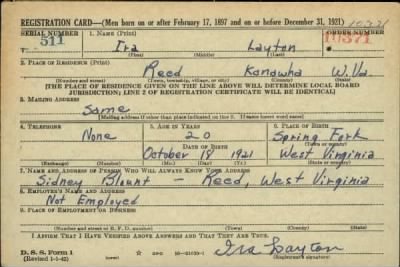 REGISTRATION CARD—(Men born on or after February 17, 1897 and on or before December 31, 1921) 10371
SERIAL NUMBER 1. NAME (Print) ORDER NUMBER
511 Ira Layton 10371
(First) (Middle) (Last)
2. PLACE OF RESIDENCE (Print)
Reed Kanawha W.Va
(Number and street) (Town, township, village, or city) (County) (State)
[THE PLACE OF RESIDENCE GIVEN ON THE LINE ABOVE WILL DETERMINE LOCAL BOARD
JURISDICTION; LINE 2 OF REGISTRATION CERTIFICATE WILL BE IDENTICAL]
3. MAILING ADDRESS
Same
[Mailing address if other than place indicated on line 2. If same insert word same]
4. TELEPHONE 5. AGE IN YEARS 6. PLACE OF BIRTH
None 20 Spring Fork
DATE OF BIRTH (Town or county)
October 18 1921 West Virginia
(Exchange) (Number) (Mo.) (Day) (Yr.) (State or country)
7. NAME AND ADDRESS OF PERSON WHO WILL ALWAYS KNOW YOUR ADDRESS
Sidney Blount — Reed, West Virginia
8. EMPLOYER'S NAME AND ADDRESS
Not Employed
9. PLACE OF EMPLOYMENT OR BUSINESS
(Number and street or R. F. D. number) (Town) (County) (State)
I AFFIRM THAT I HAVE VERIFIED ABOVE ANSWERS AND THAT THEY ARE TRUE.
D. S. S. Form 1 Ira Layton
(Revised 1-1-42) GPO 16—21630-1 (Registrant's signature)